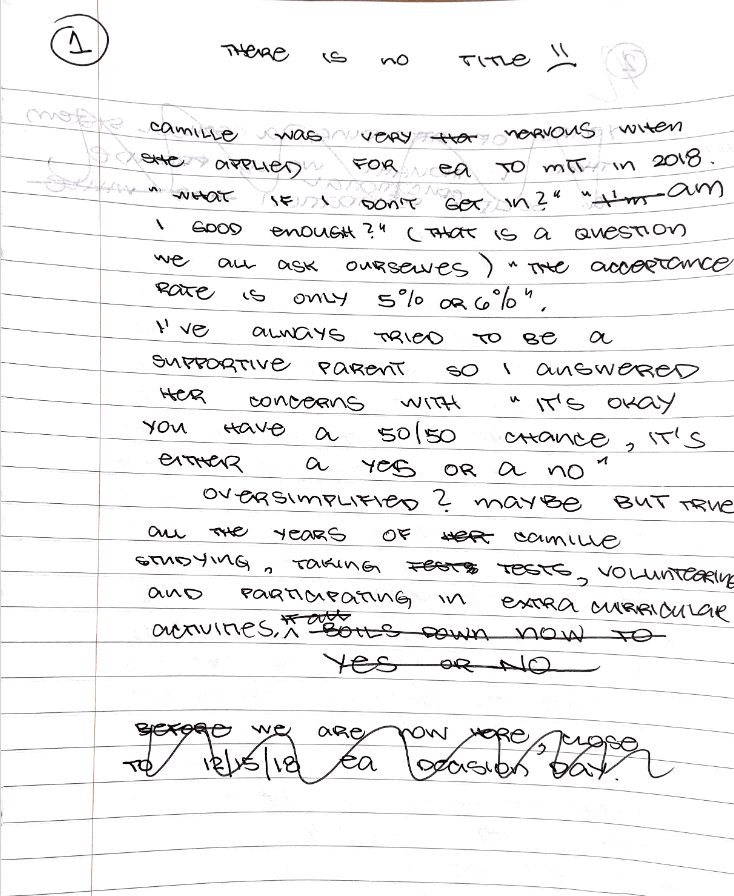 1
THERE IS NO TITLE !!
CAMILLE WAS VERY HER NERVOUS WHEN
SHE APPLIED FOR EA TO MIT IN 2018.
"WHAT IF I DON'T GET IN?" "I'm AM
I GOOD ENOUGH?" (THAT IS A QUESTION
WE ALL ASK OURSELVES) "THE ACCEPTANCE
RATE IS ONLY 5% OR 6%".
I'VE ALWAYS TRIED TO BE A
SUPPORTIVE PARENT SO I ANSWERED
HER CONCERNS WITH "IT'S OKAY
YOU HAVE A 50/50 CHANCE, IT'S
EITHER A YES OR A NO"
OVERSIMPLIFIED? MAYBE BUT TRUE
ALL THE YEARS OF HER CAMILLE
STUDYING, TAKING TESTS TESTS, VOLUNTEERING
AND PARTICIPATING IN EXTRA CURRICULAR
* all
ACTIVITIES. BOILS DOWN NOW TO
YES OR NO
BEFORE WE ARE NOW HERE, CLOSE
TO 12/15/18 EA DECISION DAY.